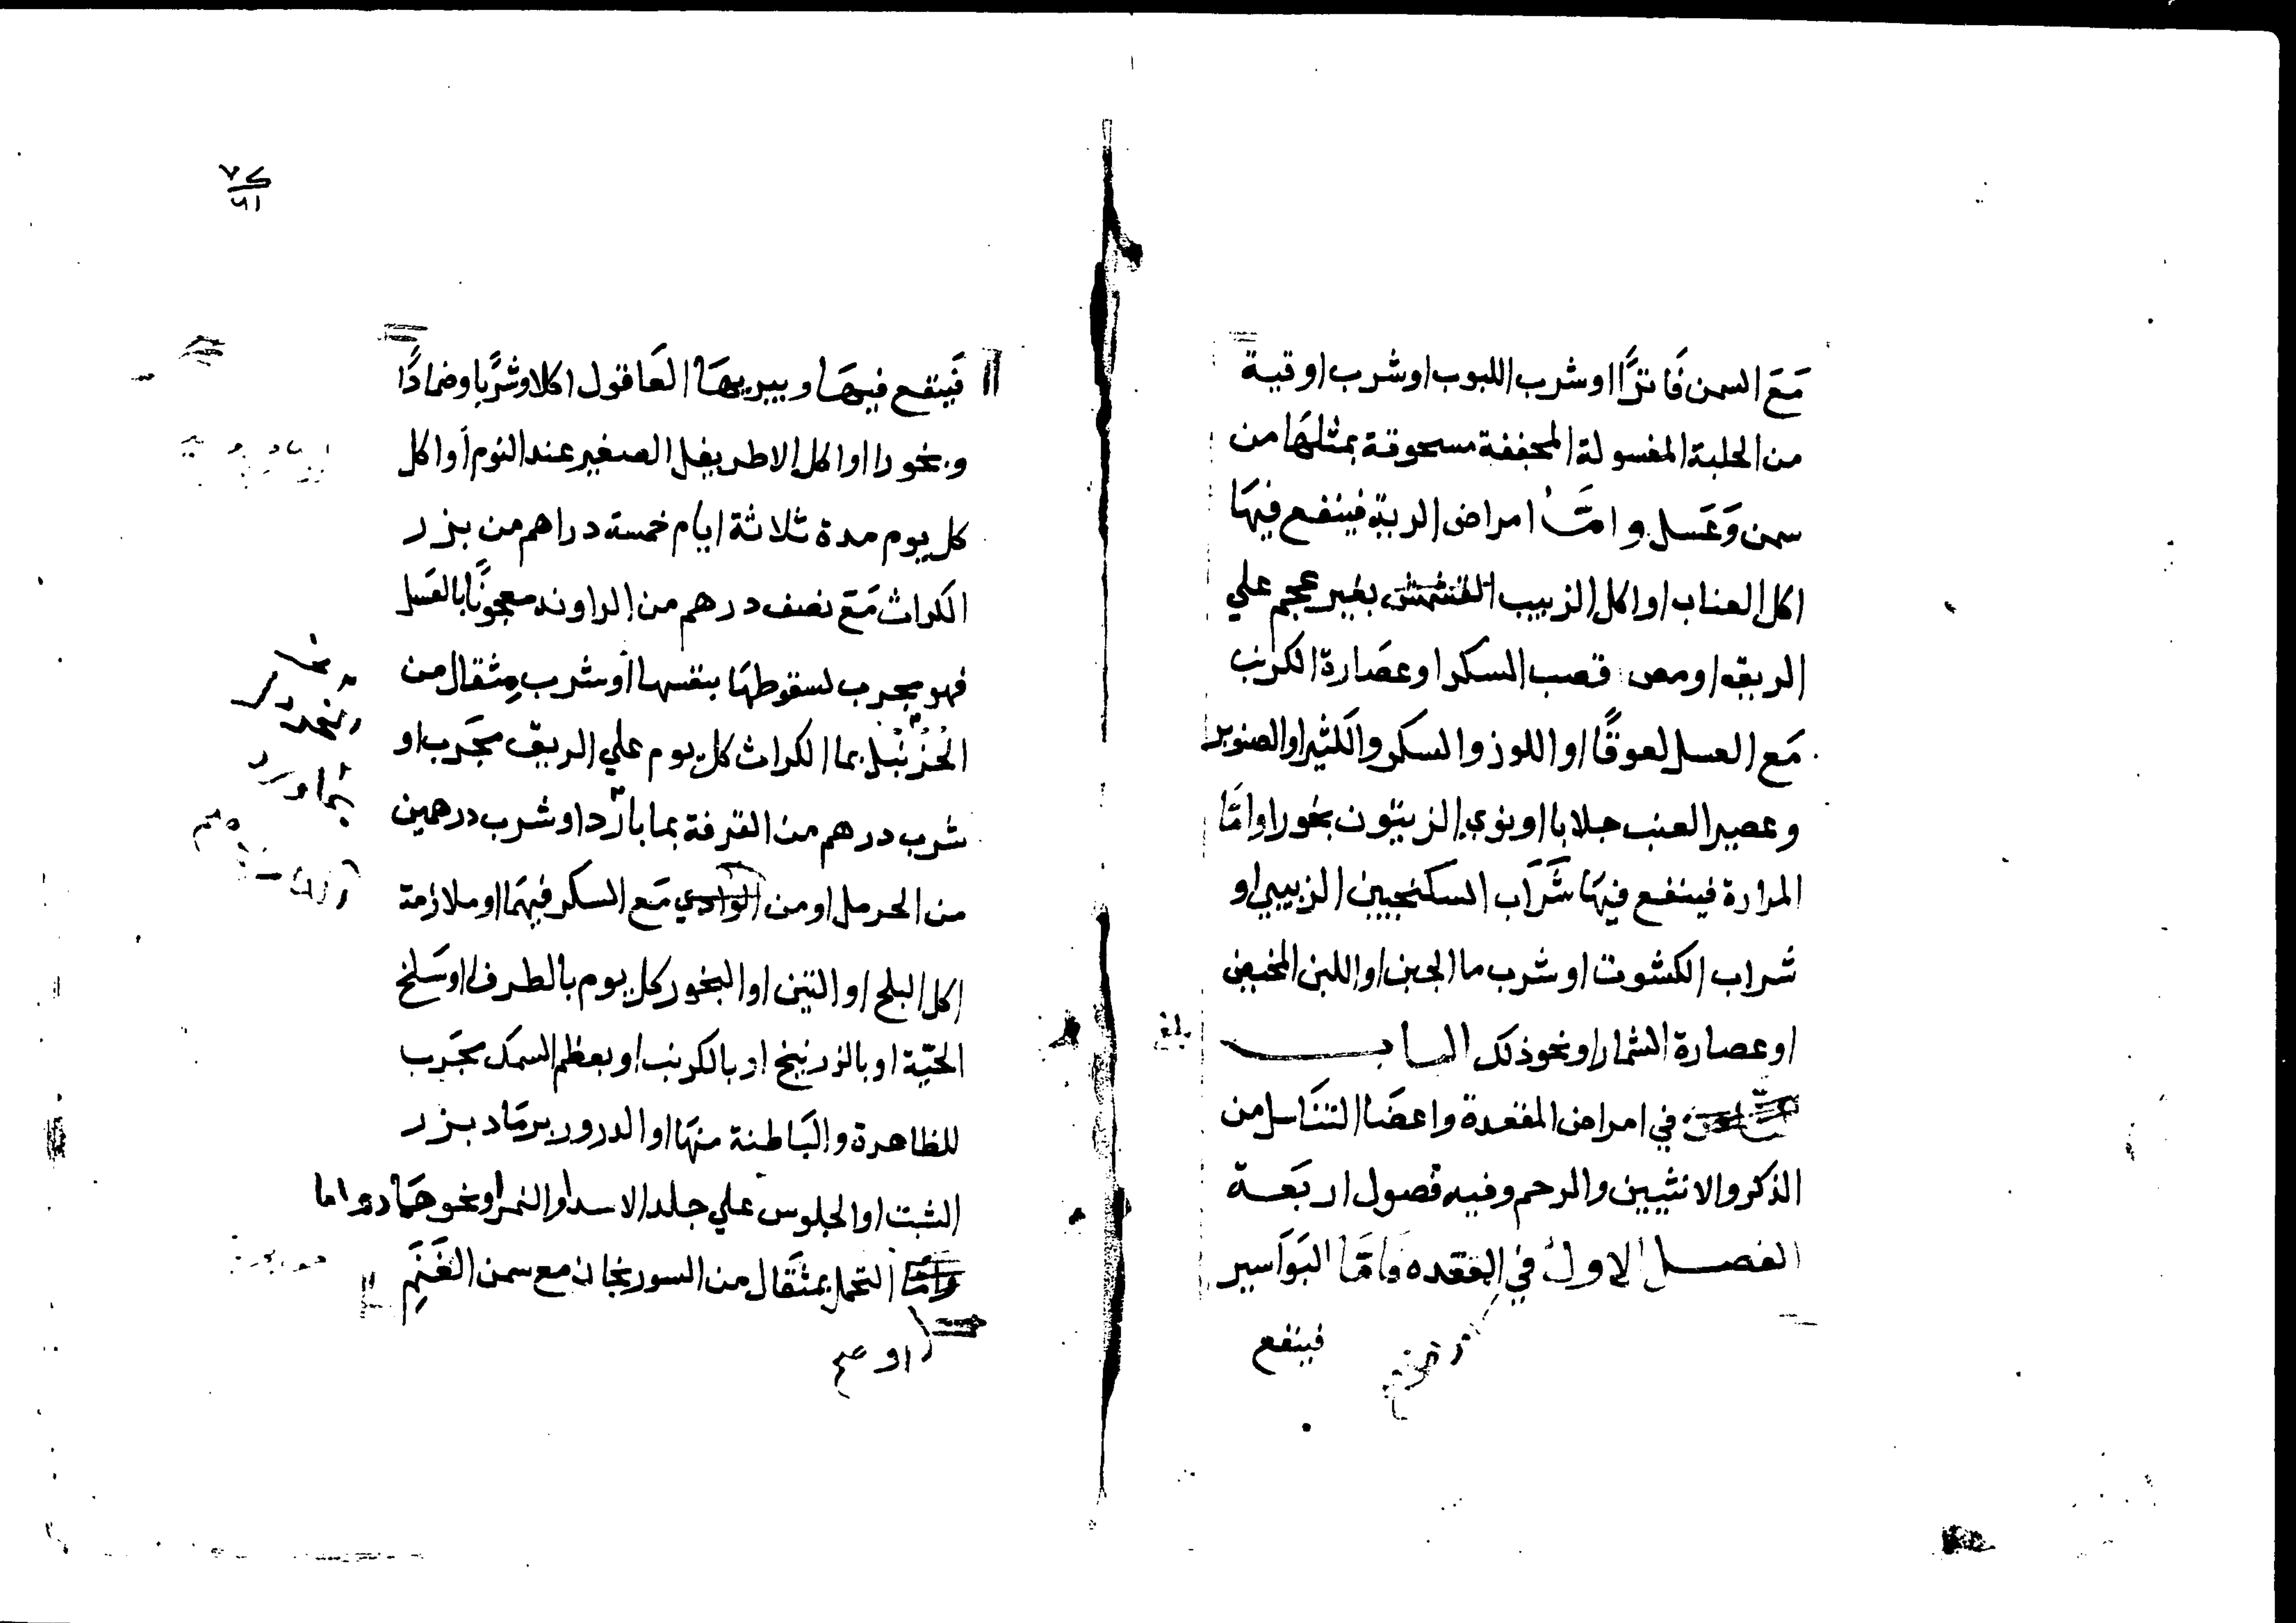 مَعَ السمن فَاترًّا اوشرب اللبوب اوشرب اوقية
من الحلبة المغسولة المجففة مسحوقة بمثلهَا من
سمن وَعَسل وامَّا امراض الرية فينفع فيهَا
اكل العناب او اكل الزبيب بغير عجم علي
الريق او مص قصب السكر او عصَارة الكرنب
مَع العسل لعوقًا او اللوز والسكر والكثيرا والصنوبر
وعصير العنب جلابا او نوي الزيتون بخورا وامَّا
المرارة فينفع فيهَا شَرَاب السكنجبين الزبيبي او
شراب الكشوت او شرب ما الجبن او اللبن المخيض
او عصارة الشمار او نحو ذلك الباب
في امراض المقعدة واعضَا التنَاسل من
الذكر والانثيين والرحم وفيه فصول اربَعة
الفصل الاول في المقعده فامَّا البَوَاسير
فينفع
فَينفع فيهَا ويبريهَا العَاقول اكلا وشرَّبا وضمادًّا
وبخورا او اكل الاطريفل الصغير عند النوم اَو اكل
كل يوم مدة ثلاثة ايام خمسة دراهم من بزر
الكراث مَع نصف درهم من الراوند معجونًا بالعَسل
فهو مجرب لسقوطهَا بنفسها اَو شرب مِثقال من
الحُزُنْبُل بما الكراث كل يوم علي الريق مجَرب او
شرب درهم من القرفة بما باردا او شرب درهمين
من الحرمل او من الوادي مَع السكر فيهمَا او ملازمة
اكل البلح او التين او البخور كل يوم بالطرفا او سَلخ
الحيّة او بالزرنيخ او بالكرنب او بعظم السمك مجَرب
للظاهرة والبَاطنة منهَا او الدرور برمَاد بزر
الشبت او الجلوس علي جلد الاسد او النمر او نحو
التحمل بمثقَال من السورنجان مع سمن الغَنَمِ
او